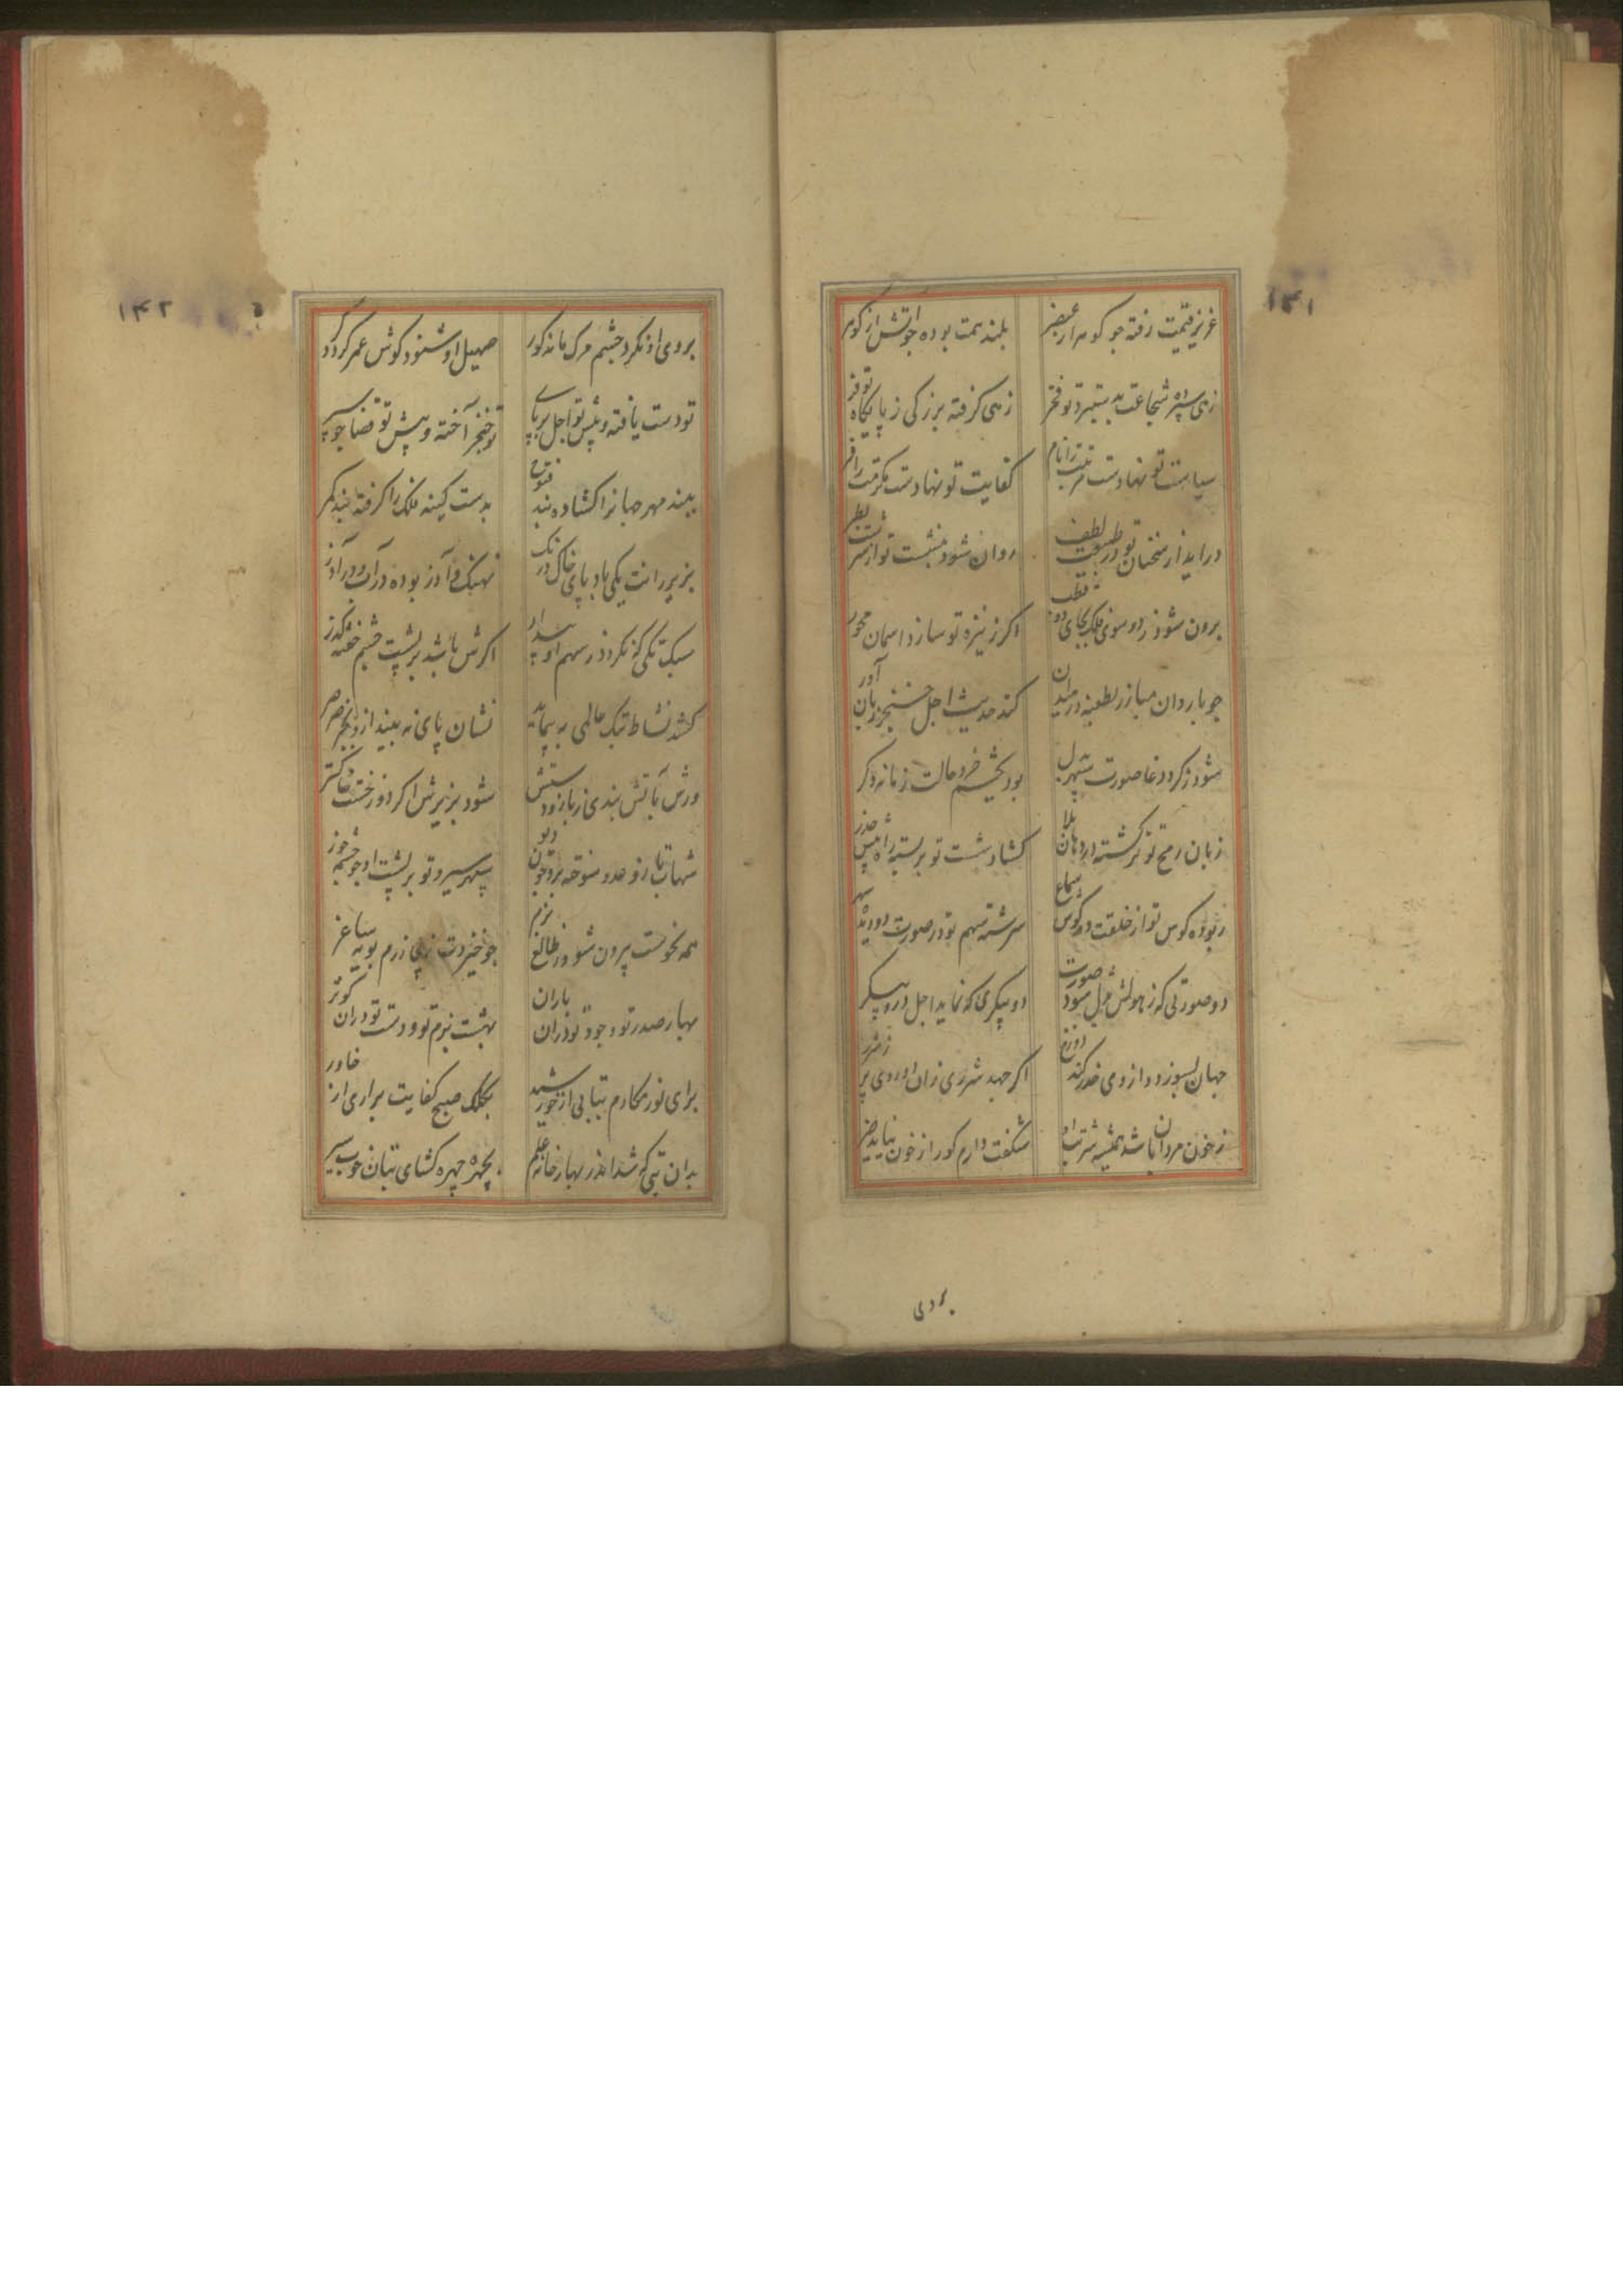 ۱۴۱
عزیز قیمت رفته جو کوهر از عنصر
بلند همت بوده جو اتش از کوهر
زهی سپرده شجاعت بدستبرد تو فخر
زهی کرفته بزرکی ز پایکاه تو فر
سیاست تو نهادست مرتبت را نام
کفایت تو نهادست مکرمت را فر
دراید از سخنان تو در طبیعت لطف
روان شود منشت تو از سرشت نظر
برون شود ز دو سوی فلک بجای دو قطب
اکر ز نیزه تو سازد اسمان محور
جو باز دان مبارز بطعنه در میدان
کند حدیث اجل خنجر زبان آور
شود ز کرد وغا صورت سپهر بدل
بود بچشم خرد حالت زمانه دکر
زبان رمح تو کشته در دهان بلا
کشاد شست تو بر بسته راه پیش حذر
ربوده کوس تو از خلقت دو کوش سماع
سرشته سهم تو در صورت دو دیده سهر
دو صورتی که ز هولش بدل شود صورت
دو پیکری که نماید اجل در و پیکر
جهان بسوزد و از وی حذر کند دوزخ
اکر جهد شرری زان در وی پر ز شرر
ز خون مردان باشد همیشه شربت او
شکفت دارم کورا ز خون نیاید ضر
بروی
۱۴۲
بروی او نکرد چشم مرک ماند کور
صهیل او شنود کوش عمر کردد کر
تو دست یافته و پیش تو اجل بر پای
تو خنجر آخته و پیش تو قضا جو سپر
ببند مهر جهانرا کشاده بند فتوح
بدست کینه فلک را کرفته بند کمر
بزیر رانت یکی باد پای خاک درنک
نهنک وآذر بوده در آب و در آذر
سبک تکی که نکردد ز سهم او بیدار
اکرش باشد بر پشت چشم خفته کذر
کشد نشاط تنک عالمی به پیماید
نشان پای نه بیند ازو بجز صرصر
ورش بآتش بندی ز باز زود ستش
شود بزیرش اکر دوزخست خاکستر
شهاب تابی و عدو سوخته برو چون دیو
سپهر سیر و تو بر پشت او جو چشمه خور
همه نحوست بیرون شود ز طالع بزم
جو خیزدت ز پی رزم بویه ساغر
بهار صدر تو و جود تو دران باران
بهشت بزم تو و دست تو دران کوثر
برای نور مکارم بتابی از خورشید
بکلک صبح کفایت براری از خاور
بدان تبی که شد اندر بهار خانه علم
بچهره چهره کشای بتان خوب سیر